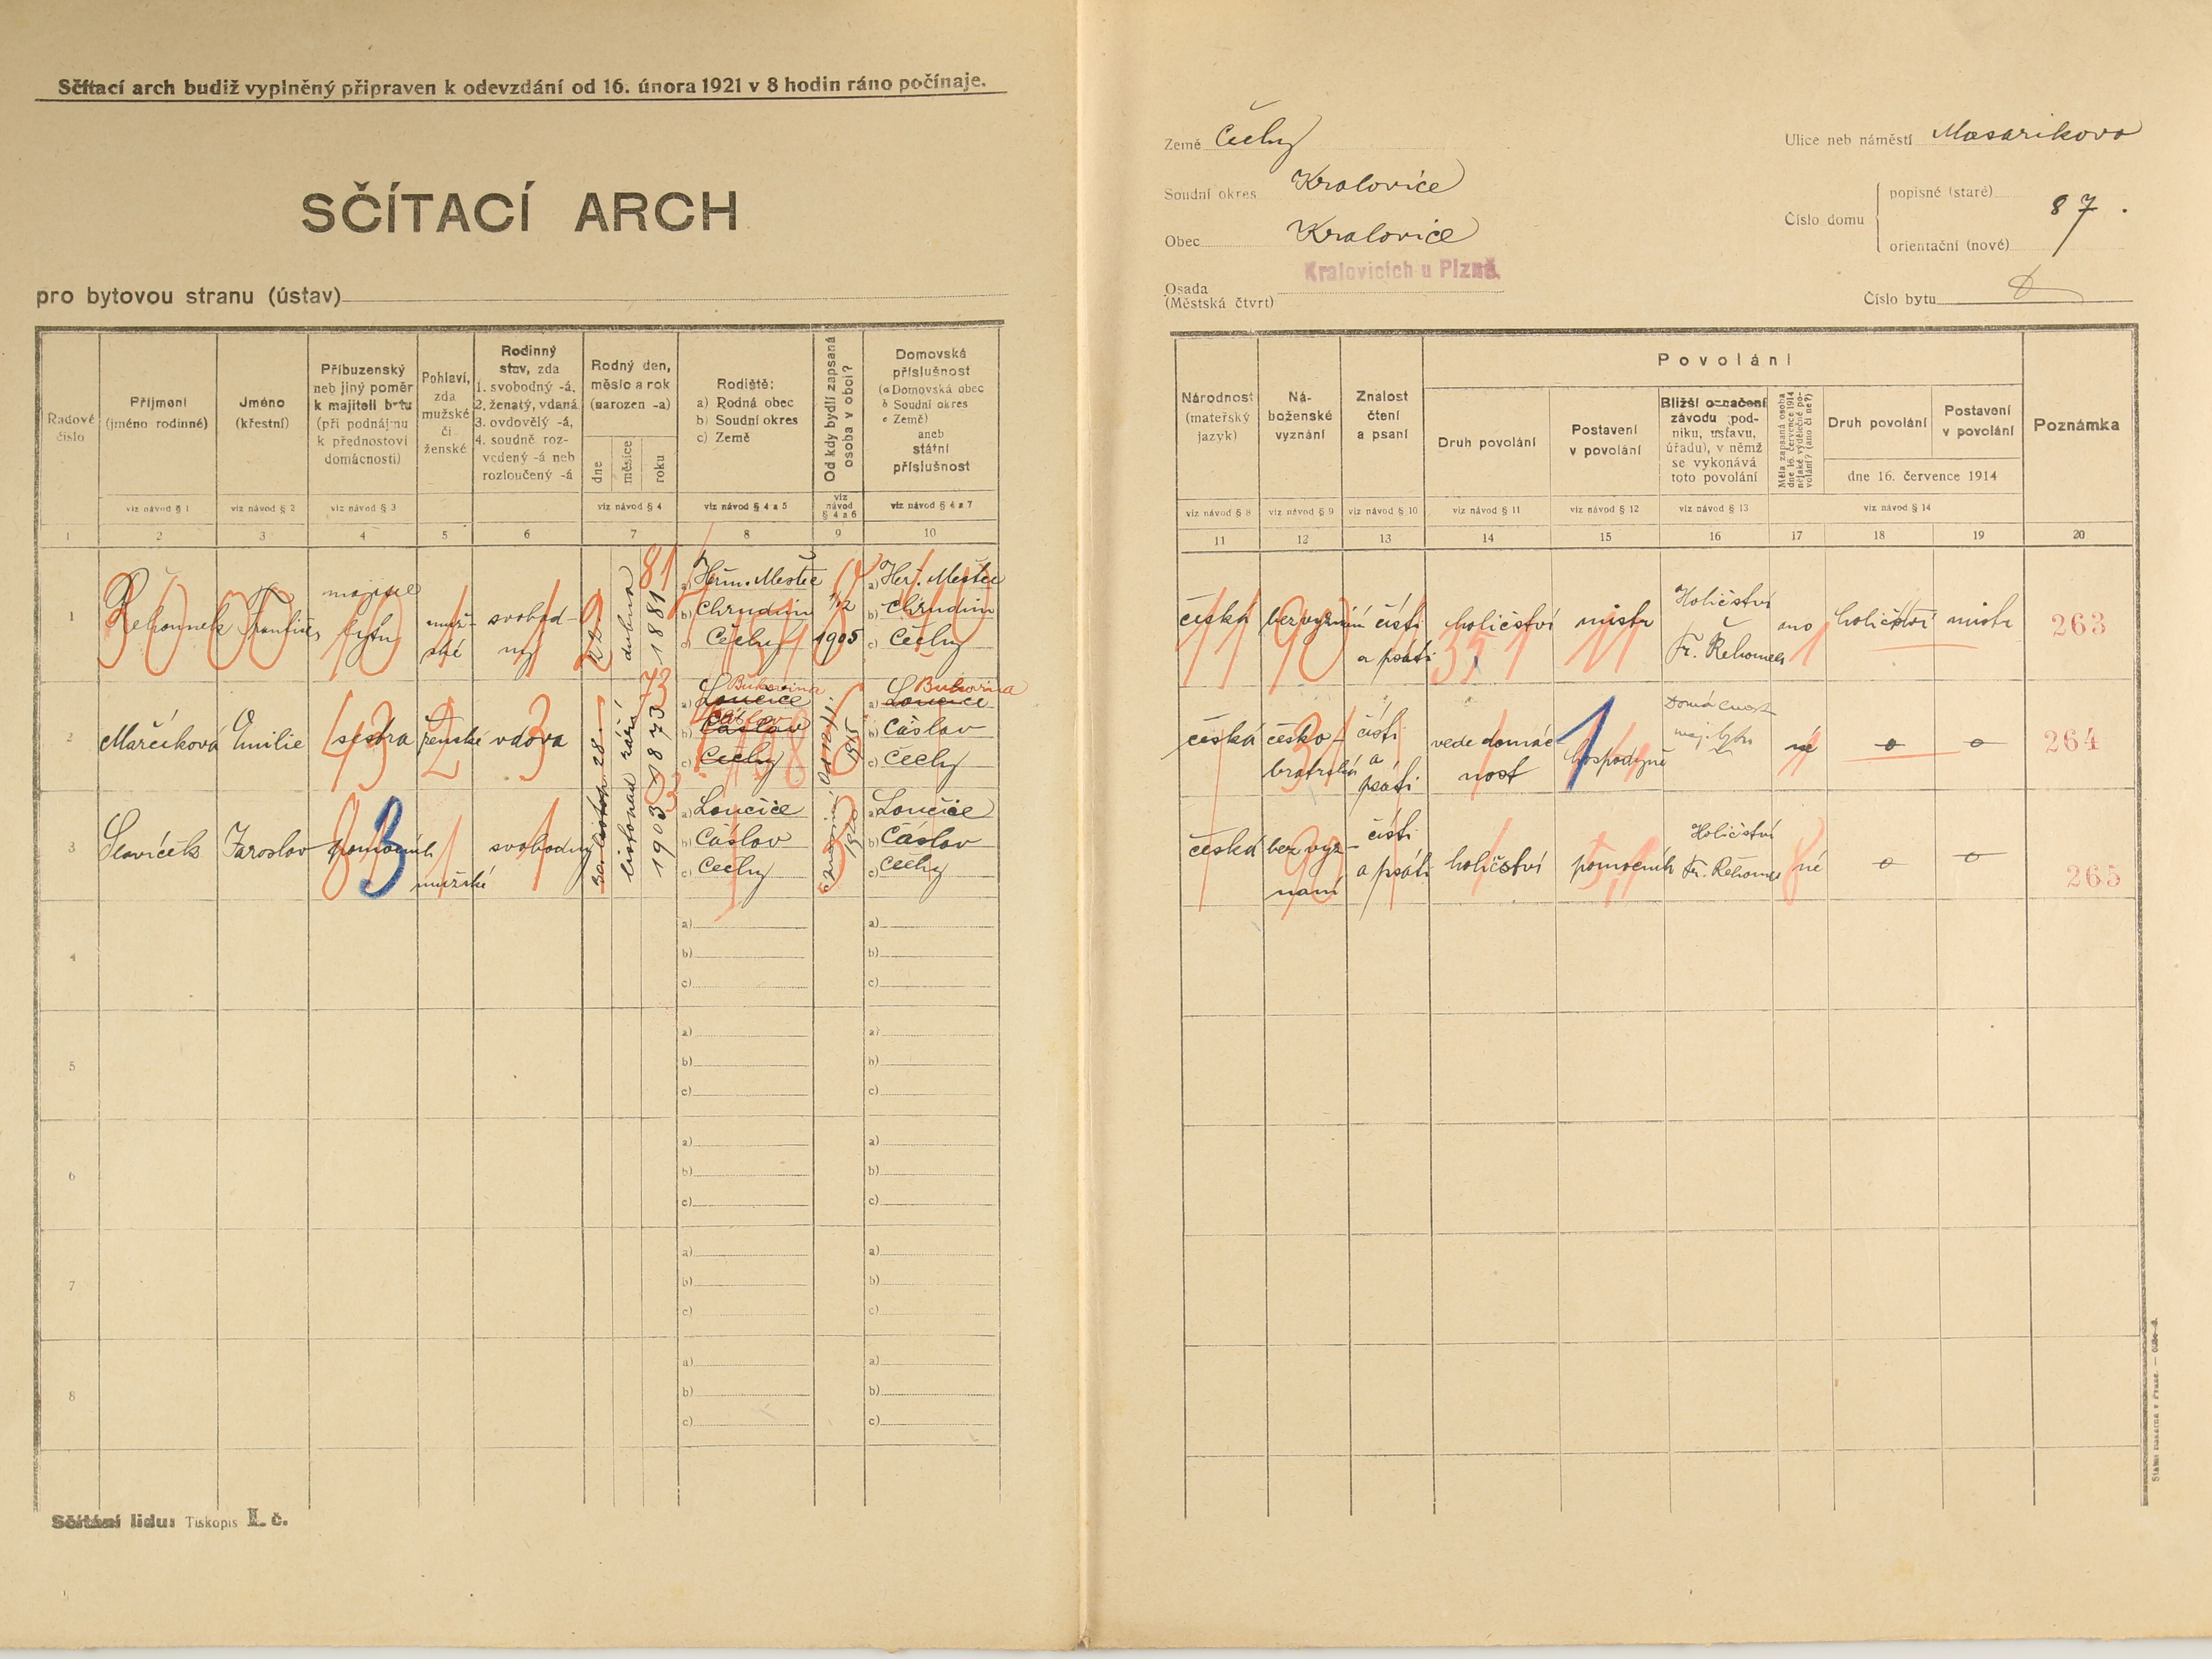 Sčítací arch budiž vyplněný připraven k odevzdání od 16. února 1921 v 8 hodin ráno počínaje.
SČÍTACÍ ARCH
pro bytovou stranu (ústav)
Země Čechy
Soudní okres Kralovice
Obec Kralovice
Kralovicích u Plzně.
Osada
(Městská čtvrt)
Ulice neb náměstí Masarikova
Číslo domu
popisné (staré)
87.
orientační (nové)
Číslo bytu
Řadové číslo
Příjmení
(jméno rodinné)
Jméno
(křestní)
Příbuzenský
neb jiný poměr
k majiteli bytu
(při podnájmu
k přednostovi
domácnosti)
Pohlaví,
zda
mužské
či
ženské
Rodinný
stav, zda
1. svobodný -á,
2. ženatý, vdaná
3. ovdovělý -á,
4. soudně roz-
vedený -á neb
rozloučený -á
Rodný den,
měsíc a rok
(narozen -a)
dne
měsíce
roku
Rodiště:
a) Rodná obec
b) Soudní okres
c) Země
Od kdy bydlí zapsaná
osoba v obci?
Domovská
příslušnost
(a Domovská obec
b Soudní okres
c Země)
aneb
státní
příslušnost
Národnost
(mateřský
jazyk)
Ná-
boženské
vyznání
Znalost
čtení
a psaní
Povolání
Druh povolání
Postavení
v povolání
Bližší označení
závodu (pod-
niku, ústavu,
úřadu), v němž
se vykonává
toto povolání
Měla zapsaná osoba
dne 16. července 1914
nějaké výdělečné po-
volání? (ano či ne?)
Druh povolání
Postavení
v povolání
dne 16. července 1914
Poznámka
viz návod § 1
viz návod § 2
viz návod § 3
viz návod § 4
viz návod § 4 a 5
viz
návod
§ 4 a 6
viz návod § 4 a 7
viz návod § 8
viz návod § 9
viz návod § 10
viz návod § 11
viz návod § 12
viz návod § 13
viz návod § 14
1 2 3 4 5 6 7 8 9 10
11 12 13 14 15 16 17 18 19 20
1
František
majitel
bytu
muž-
ské
svobod-
ný
dubna
1881
81
a) Heřm. Mestec
b) Chrudim
c) Čechy
1905
a) Heř. Mestec
b) Chrudim
c) Čechy
česká
čísti
a psáti
holičství
mistr
Holičství
ano
holičství
mistr
263
2
Marčíková
Emilie
sestra
ženské
vdova
28
září
1873
73
Bukovina
a) Loučice
Čáslav
b) Čáslav
c) Čechy
1915
Bukovina
a) Loučice
b) Čáslav
c) Čechy
česká
česko-
bratrské
čísti
a
psáti
vede domác-
nost
hospodyně
Domácnost
maj. bytu
né
o
o
264
3
Slavíček
Jaroslav
pomocník
mužské
svobodný
listopad
1903
3
a) Loučice
b) Čáslav
c) Čechy
1920
a) Loučice
b) Čáslav
c) Čechy
česká
bez vyz-
naní
čísti
a psáti
holičství
pomocník
Holičství
né
o
o
265
4
a) a)
b) b)
c) c)
5
a) a)
b) b)
c) c)
6
a) a)
b) b)
c) c)
7
a) a)
b) b)
c) c)
8
a) a)
b) b)
c) c)
Sčítání lidu: Tiskopis I. č.